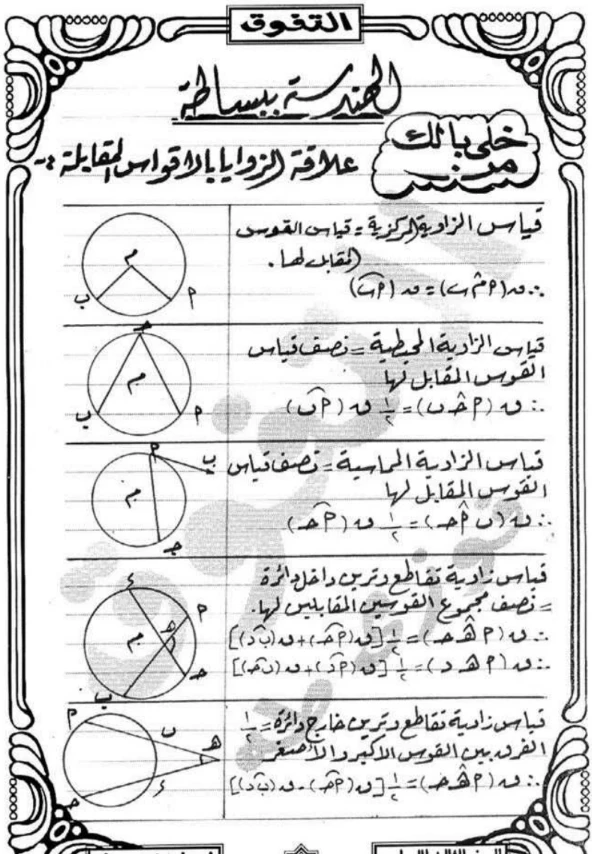 التفوق
الهندسة ببساطة
خلى بالك
من
علاقة الزوايا بالأقواس المقابلة :-
قياس الزاوية المركزية = قياس القوس
المقابل لها .
∴ ق(م̂ا م ب) = ق(ا͡ب)
م
ب
ا
قياس الزاوية المحيطية = نصف قياس
القوس المقابل لها
∴ ق(ا ح̂ ب) = ١/٢ ق(ا͡ب)
ح
م
ب
ا
قياس الزاوية المماسية = نصف قياس
القوس المقابل لها
∴ ق(ب ا̂ ح) = ١/٢ ق(ا͡ح)
ا
ب
م
ح
قياس زاوية تقاطع وترين داخل دائرة
= نصف مجموع القوسين المقابلين لها.
∴ ق(ا ه̂ ح) = ١/٢ [ق(ا͡ح) + ق(ب͡د)]
∴ ق(ا ه̂ د) = ١/٢ [ق(ا͡د) + ق(ب͡ح)]
ء
ا
ه
م
ح
ب
قياس زاوية تقاطع وترين خارج دائرة = ١/٢
الفرق بين القوس الأكبر والأصغر
∴ ق(ا ه̂ ح) = ١/٢ [ق(ا͡ح) - ق(ب͡د)]
ا
ب
ه
ء
ح